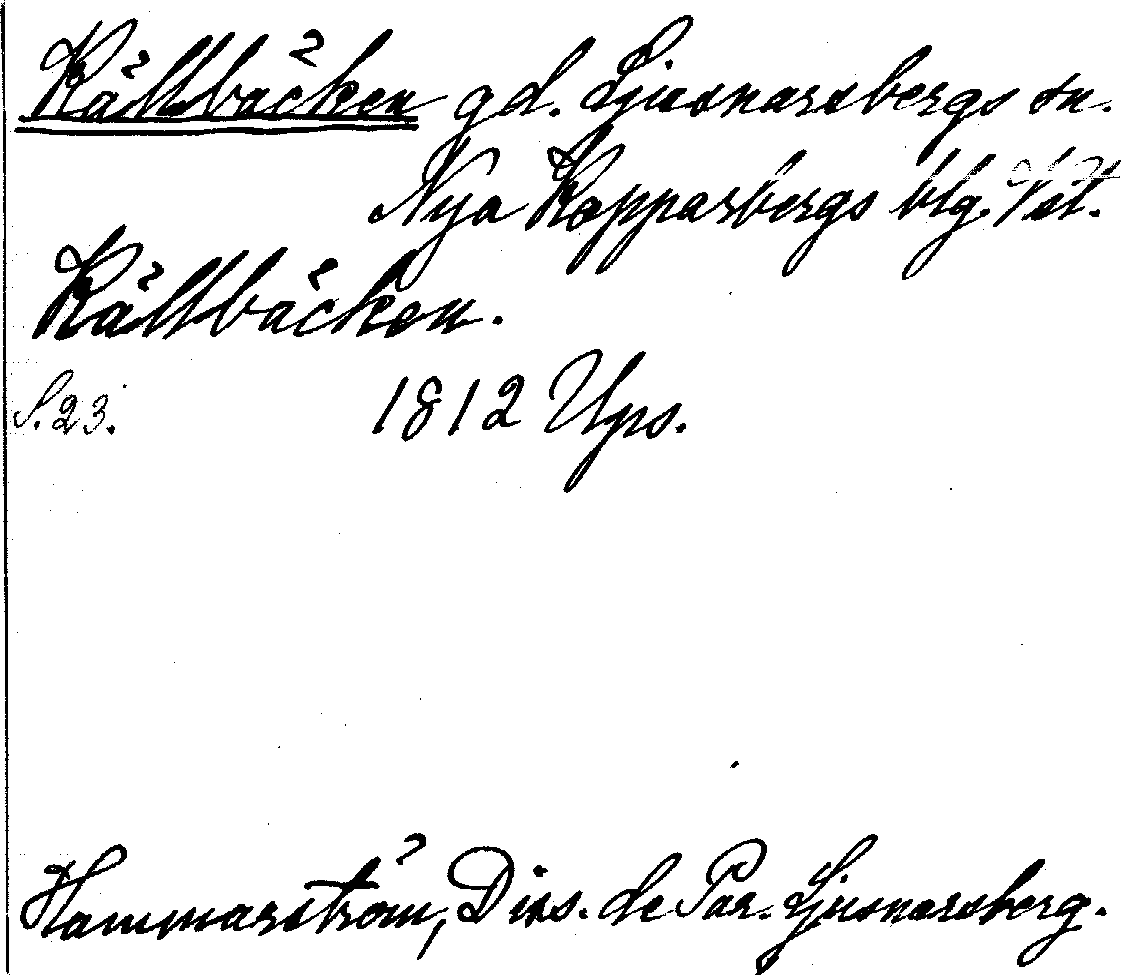 Källbäcken gd. Ljusnarsbergs sn.
Nya Kopparbergs blg. Vstl.
Källbäcken.
S. 23. 1812 Ups.
Hammarström, Diss. de Par. Ljusnarsberg.